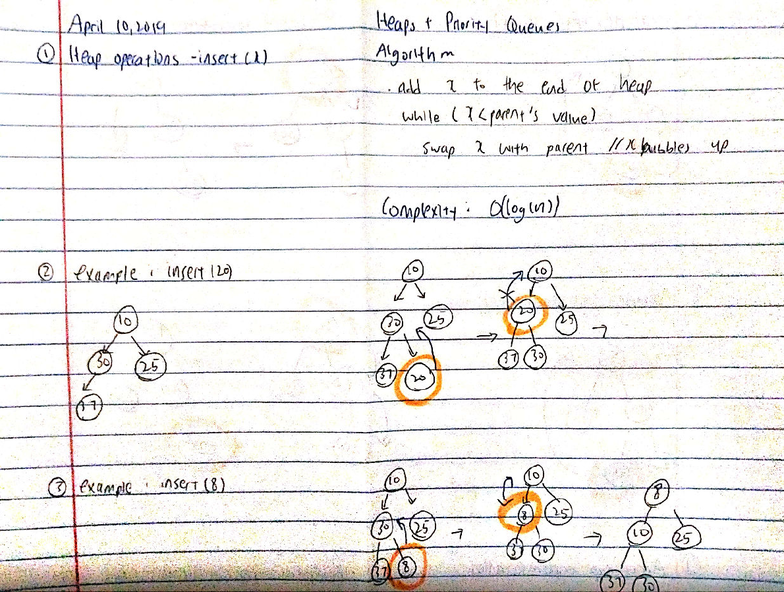 April 10, 2019
Heaps + Priority Queues
① Heap operations - insert (x)
Algorithm
. add x to the end of heap
while ( x < parent's value)
swap x with parent // x bubbles up
Complexity : O(log(n))
② example : insert (20)
10
30 25
37
10
30 25
37 20
→
10
20 25
37 30
→
③ example : insert (8)
10
30 25
37 8
→
10
8 25
37 30
→
8
10 25
37 30